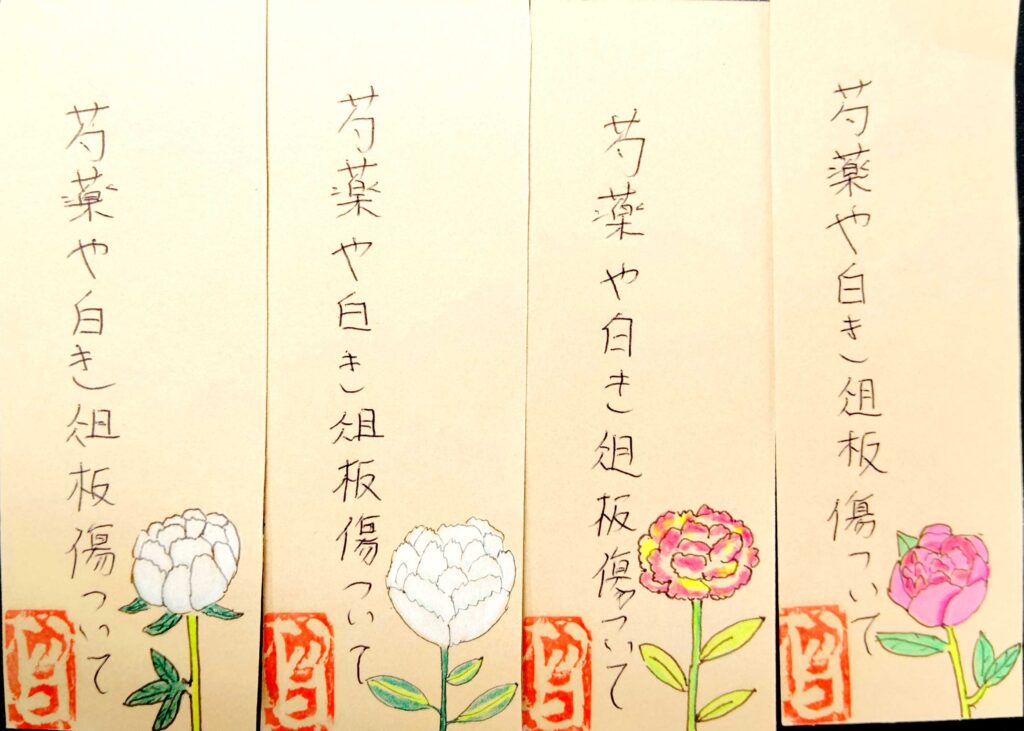 芍薬や白き俎板傷ついて
芍薬や白き俎板傷ついて
芍薬や白き俎板傷ついて
芍薬や白き俎板傷ついて